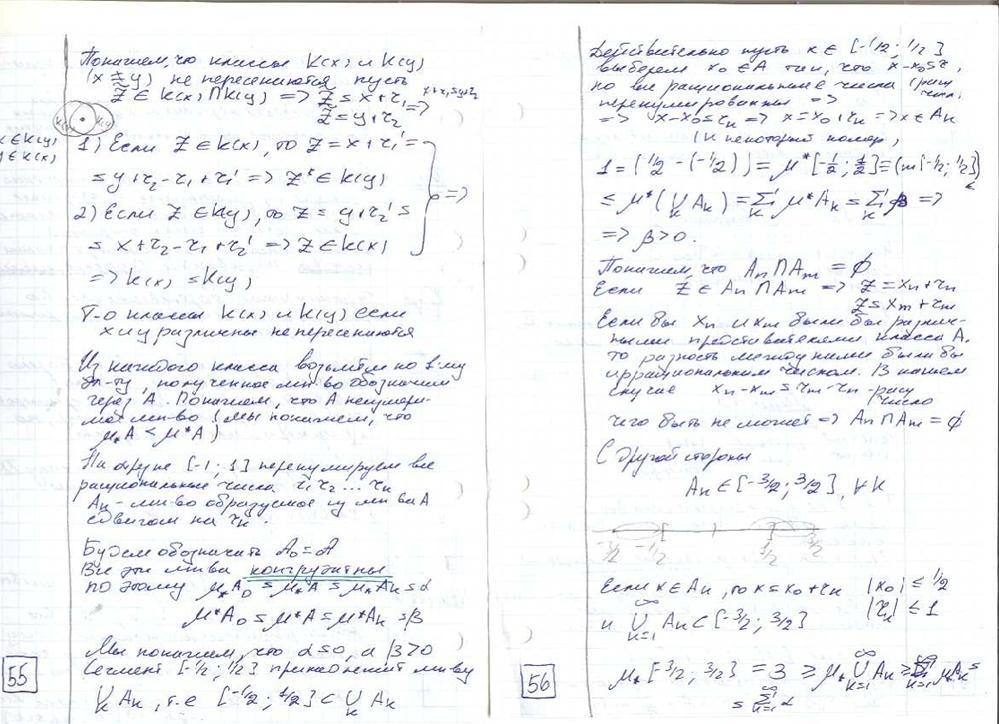 Покажем, что классы K(x) и K(y)
(x ≠ y) не пересекаются пусть
Z ∈ K(x) ∩ K(y) => Z = x + r₁ =>
Z = y + r₂
x + r₁ = y + r₂
x ∈ K(y)
y ∈ K(x)
1) Если Z ∈ K(x), то Z = x + r₁' =
= y + r₂ - r₁ + r₁' => Z ∈ K(y)
2) Если Z ∈ K(y), то Z = y + r₂' =
= x + r₂ - r₁ + r₂' => Z ∈ K(x)
=>
=> K(x) = K(y)
Т-о классы K(x) и K(y) если
x и y различны не пересекаются
Из каждого класса возьмём по 1-му
эл-ту, полученное мн-во обозначим
через A. Покажем, что A неизмери-
мое мн-во (мы покажем, что
μ*A ≤ μ*A)
На отрезке [-1; 1] перенумеруем все
рациональные числа r₁ r₂ ... rₖ
Aₖ - мн-во образуемое из мн-ва A
сдвигом на rₖ.
Будем обозначить A₀ = A
Все эти мн-ва конгруэнтны
по этому μ*A₀ = μ*A = μ*Aₖ = α
μ*A₀ = μ*A = μ*Aₖ = β
Мы покажем, что α = 0, а β > 0
Сегмент [-1/2; 1/2] принадлежит мн-ву
⋃ₖ Aₖ, т.е [-1/2; 1/2] ⊂ ⋃ₖ Aₖ
55
Действительно пусть x ∈ [-1/2; 1/2]
выберем x₀ ∈ A так, что x - x₀ = r,
но все рациональные числа
перенумерованны =>
=> x - x₀ = rₖ => x = x₀ + rₖ => x ∈ Aₖ
(к некоторый номер)
1 = (1/2 - (-1/2)) = μ*[-1/2; 1/2] = (m[-1/2; 1/2]) ≤
≤ μ*(⋃ₖ Aₖ) = Σₖ μ*Aₖ = Σₖ β =>
=> β > 0.
Покажем, что Aₙ ∩ Aₘ = ∅
Если Z ∈ Aₙ ∩ Aₘ => Z = xₙ + rₙ
Z = xₘ + rₘ
Если бы xₙ и xₘ были бы различ-
ными представителями класса A,
то разность между ними были бы
иррациональным числом. В нашем
случае xₙ - xₘ = rₘ - rₙ - рац
число
чего быть не может => Aₙ ∩ Aₘ = ∅
С другой стороны
Aₖ ∈ [-3/2; 3/2], ∀ k
-3/2 -1/2 1/2 3/2
Если x ∈ Aₖ, то x = x₀ + rₖ |x₀| ≤ 1/2
|rₖ| ≤ 1
и ⋃ₖ₌₁^∞ Aₖ ⊂ [-3/2; 3/2]
μ*[3/2; 3/2] = 3 ≥ μ* ⋃ₖ₌₁^∞ Aₖ ≥ Σₖ₌₁^∞ μ*Aₖ =
= Σₖ₌₁^∞ α
56